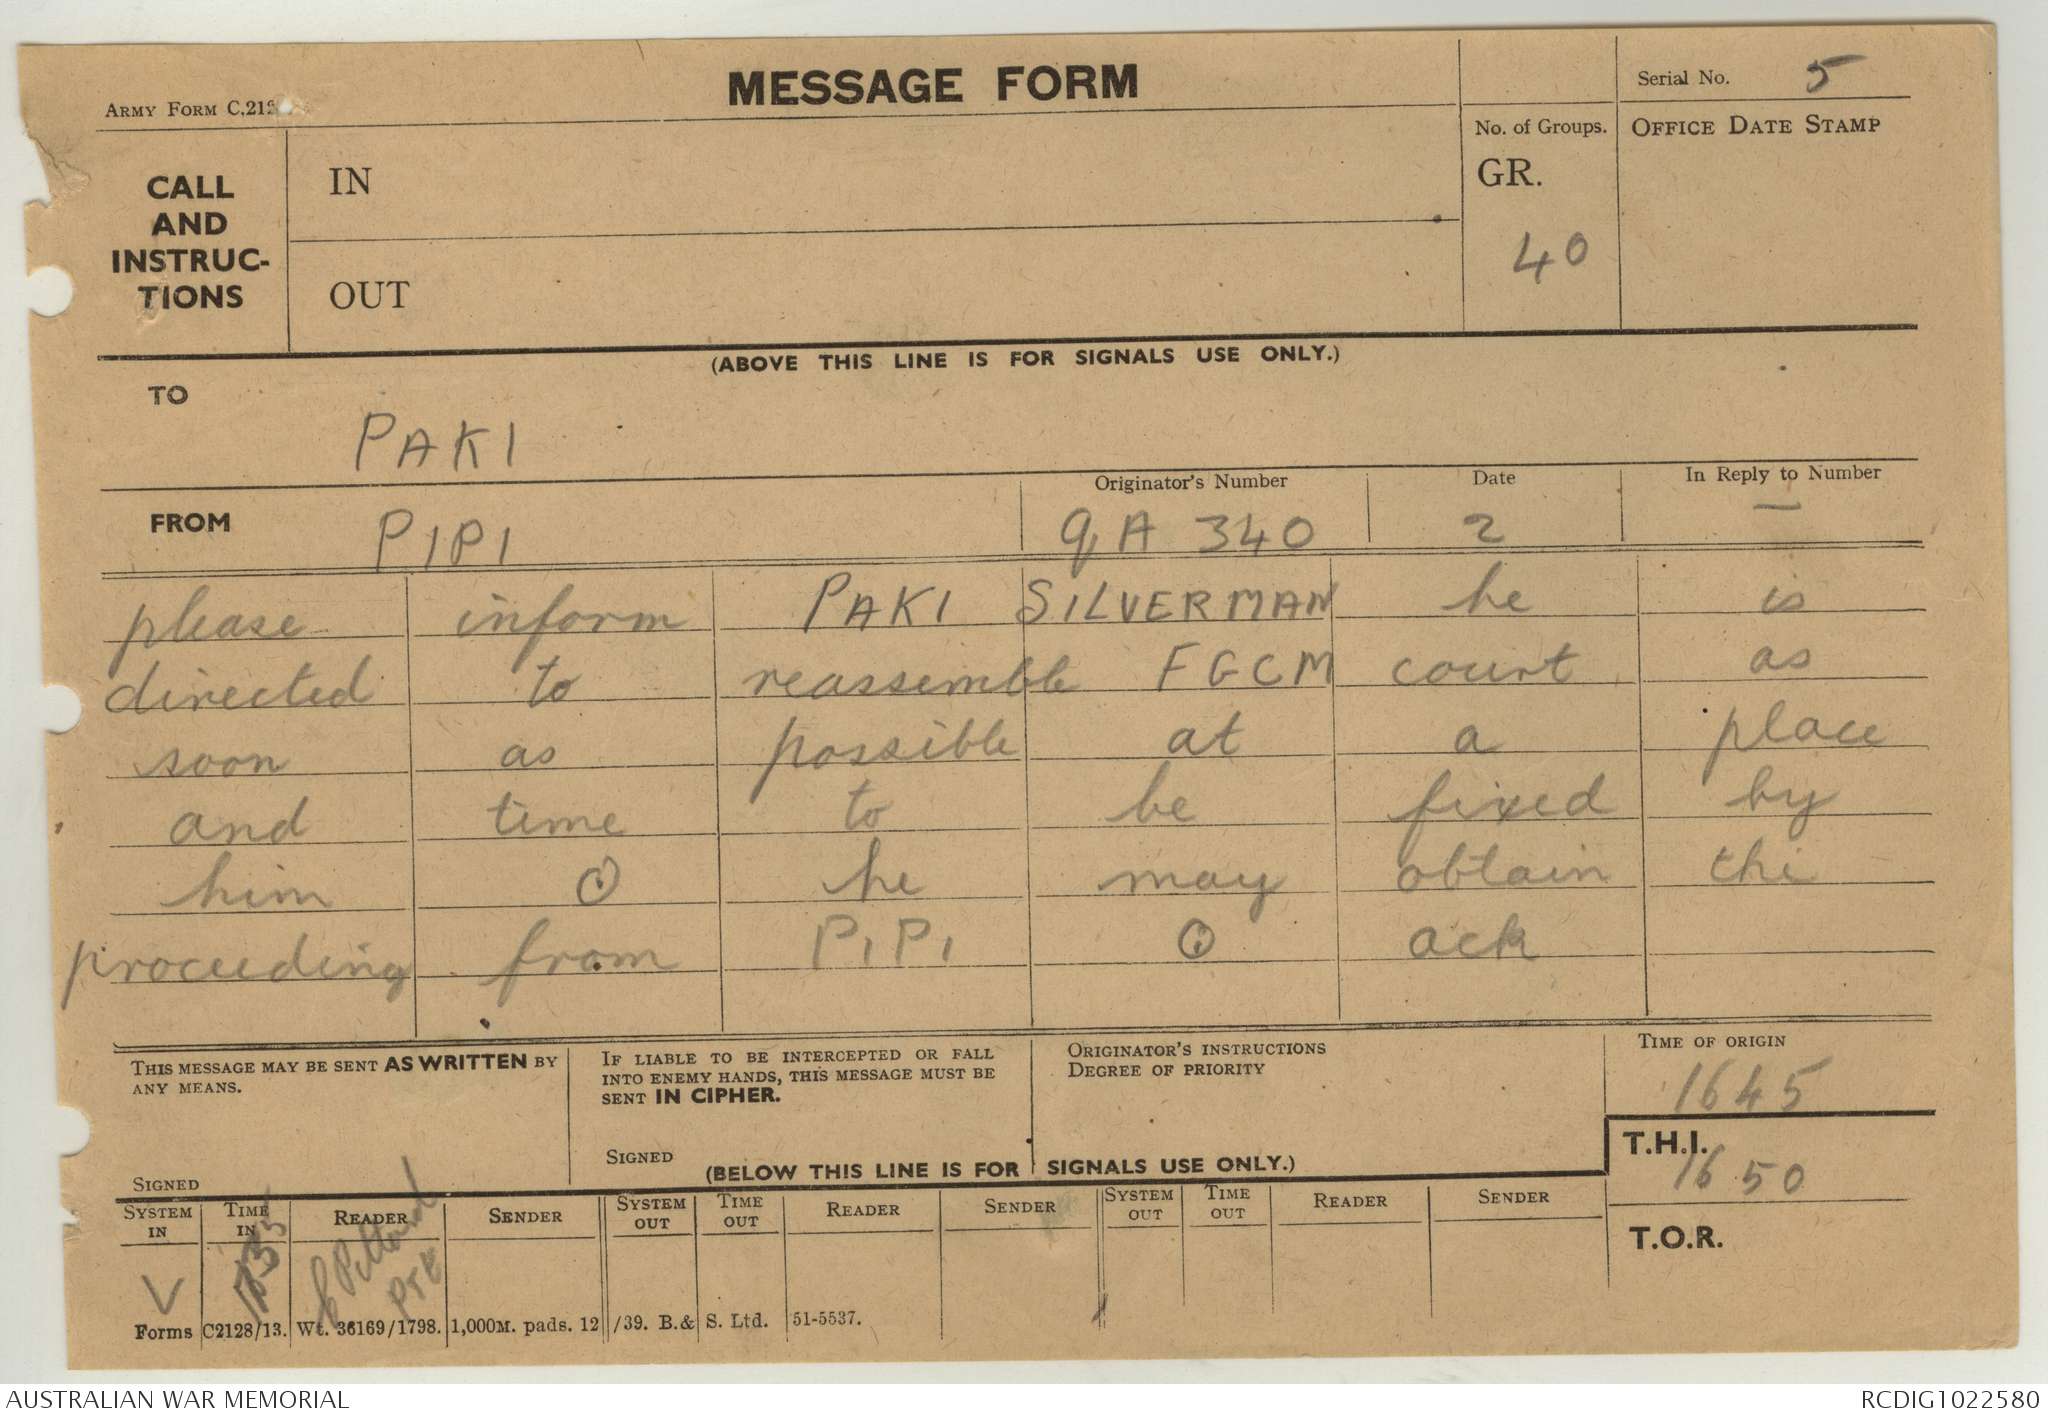 MESSAGE FORM
ARMY FORM C.212
Serial No. 5
CALL AND INSTRUC- TIONS
IN
OUT
No. of Groups.
GR.
40
OFFICE DATE STAMP
(ABOVE THIS LINE IS FOR SIGNALS USE ONLY.)
TO
PAKI
FROM PIPI
Originator's Number
QA 340
Date
2
In Reply to Number
—
please inform PAKI SILVERMAN he is
directed to reassemble FGCM court as
soon as possible at a place
and time to be fixed by
him ⊙ he may obtain thi
proceeding from PIPI ⊙ ack
THIS MESSAGE MAY BE SENT AS WRITTEN BY
ANY MEANS.
SIGNED
IF LIABLE TO BE INTERCEPTED OR FALL
INTO ENEMY HANDS, THIS MESSAGE MUST BE
SENT IN CIPHER.
SIGNED
ORIGINATOR'S INSTRUCTIONS
DEGREE OF PRIORITY
TIME OF ORIGIN
1645
T.H.I.
1650
T.O.R.
(BELOW THIS LINE IS FOR SIGNALS USE ONLY.)
SYSTEM IN TIME IN READER SENDER SYSTEM OUT TIME OUT READER SENDER SYSTEM OUT TIME OUT READER SENDER
V
PTE
Forms C2128/13. Wt. 36169/1798. 1,000M. pads. 12/39. B.& S. Ltd. 51-5537.
AUSTRALIAN WAR MEMORIAL
RCDIG1022580